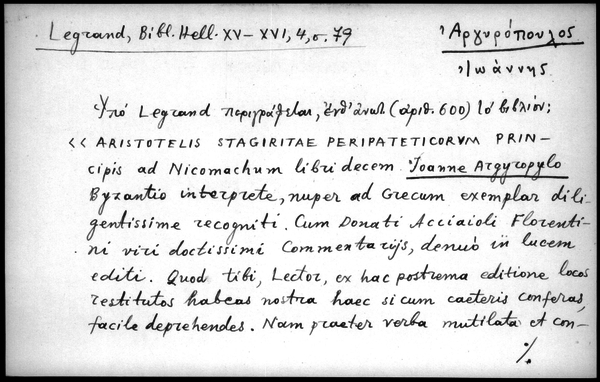 Legrand, Bibl. Hell. XV–XVI, 4, σ. 79
Ἀργυρόπουλος
Ἰωάννης
Ὑπό Legrand περιγράφεται, ἐνθ' ἀνωτ. (ἀριθ. 600) τό βιβλίον:
<< ARISTOTELIS STAGIRITAE PERIPATETICORVM PRIN-
cipis ad Nicomachum libri decem. Joanne Argyropylo
Byzantio interprete, nuper ad Grecum exemplar dili
gentissime recogniti. Cum Donati Acciaioli Florenti-
ni viri doctissimi Commentarijs, denuò in lucem
editi. Quod tibi, Lector, ex hac postrema editione locos
restitutos habeas nostra haec si cum caeteris conferas,
facile deprehendes. Nam praeter verba mutilata et con-
%